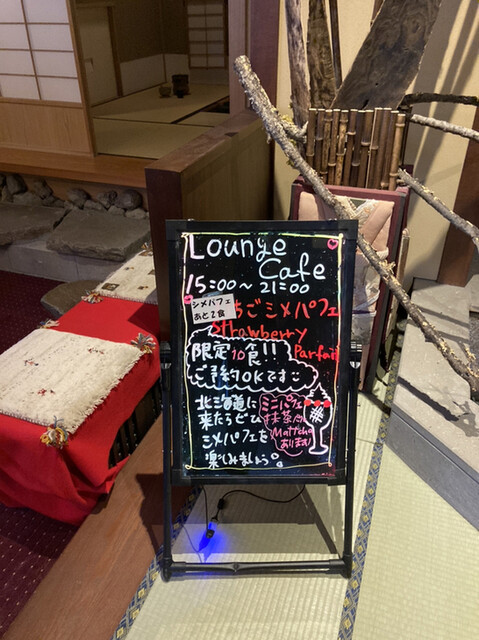 Lounge
Cafe
15:00〜21:00
シメパフェ
あと2食
ちごシメパフェ
Strawberry
Parfait
限定10食!!
ご予約OKです
北海道に
来たらぜひ
シメパフェを
楽しみましょう。
ミニパフェ
抹茶
Mattcha
あります!